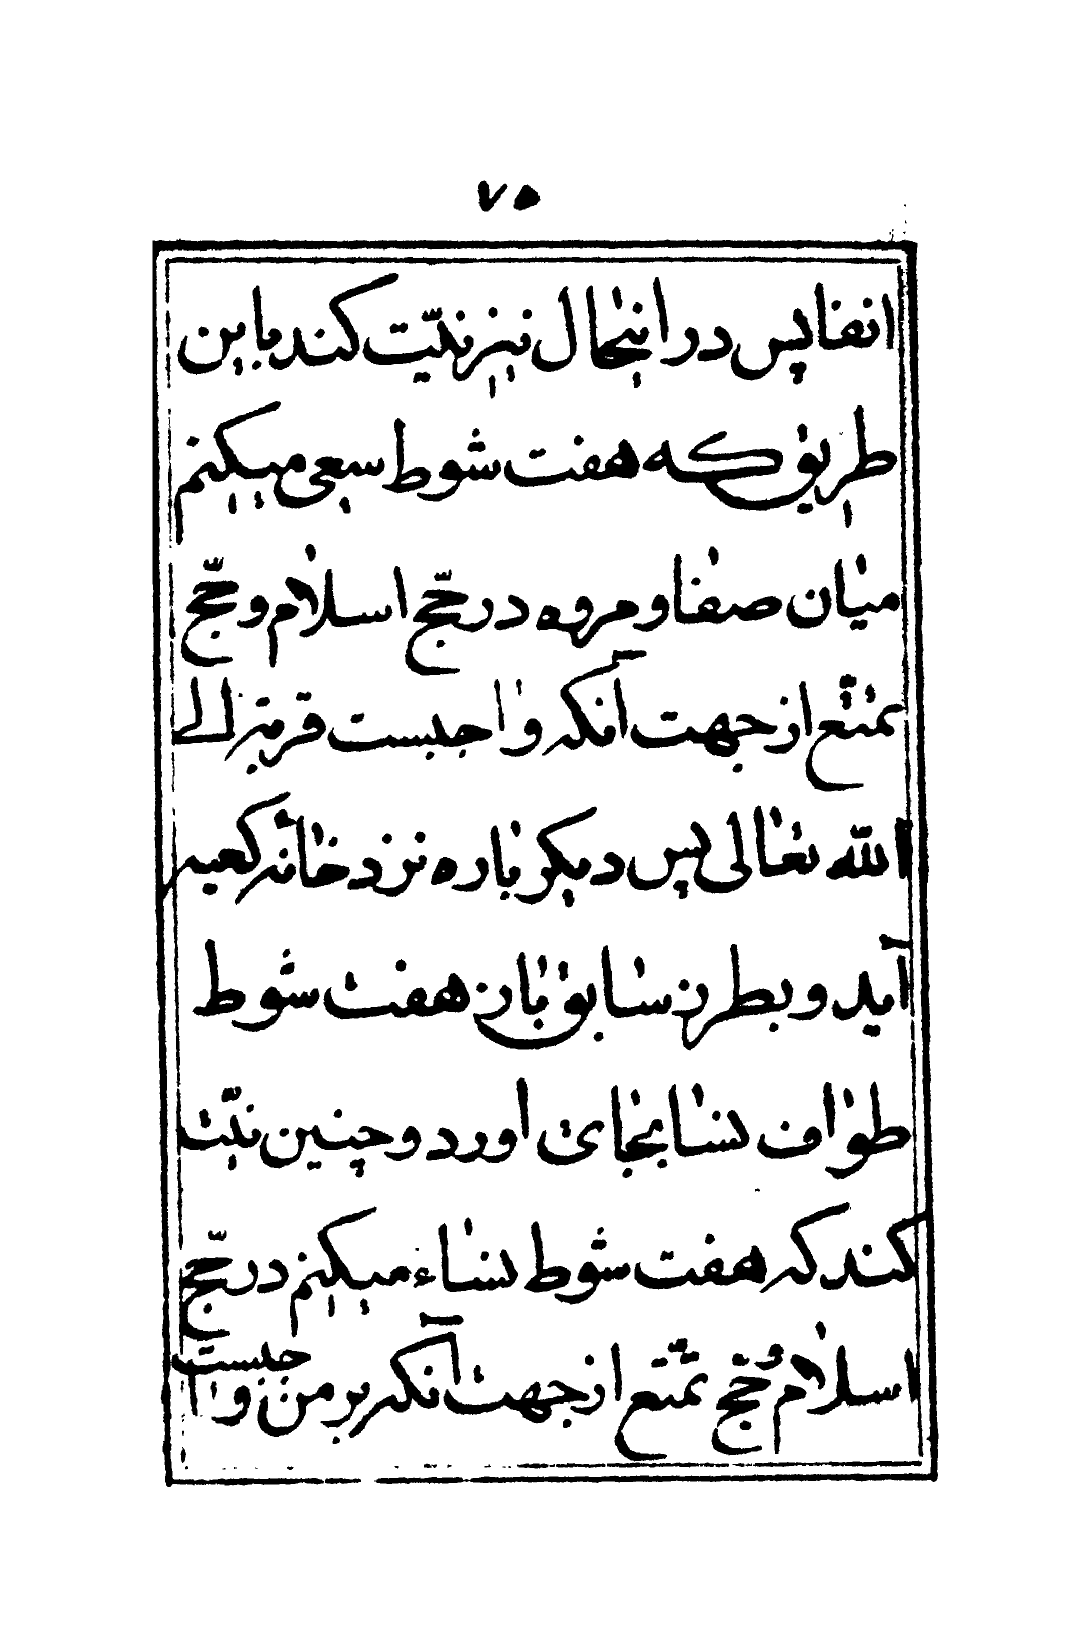 ۷۵
انفا پس در اینحال نیز نیّت کند باین
طریق که هفت شوط سعی میکنم
میان صفا و مروه در حجّ اسلام و حجّ
تمتّع از جهت آنکه واجبست قربة الی
الله تعالی پس دیکر باره نزد خانهٔ کعبه
آید و بطرز سابق باز هفت شوط
طواف نسا بجای اورد و چنین نیّت
کند که هفت شوط نساء میکنم در حجّ
اسلام وُ حجّ تمتّع از جهت آنکه بر من واجبست